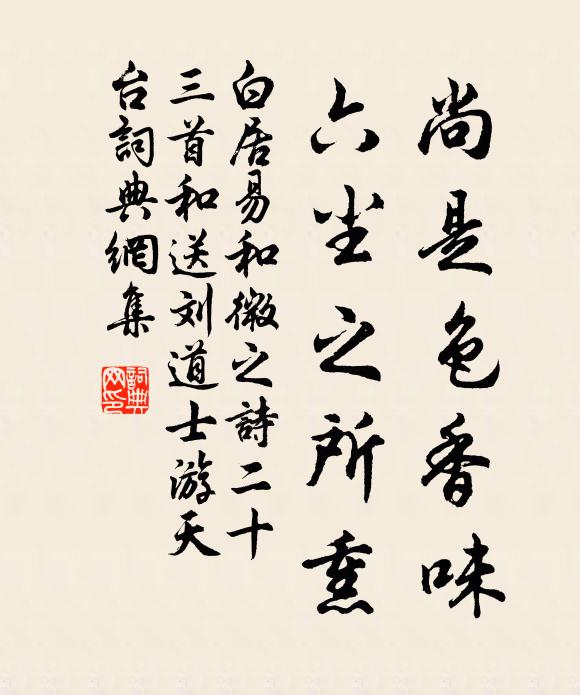 尚是色香味
六尘之所熏
白居易和微之詩二十
三首和送刘道士游天
台詞典網集
詞典
网印